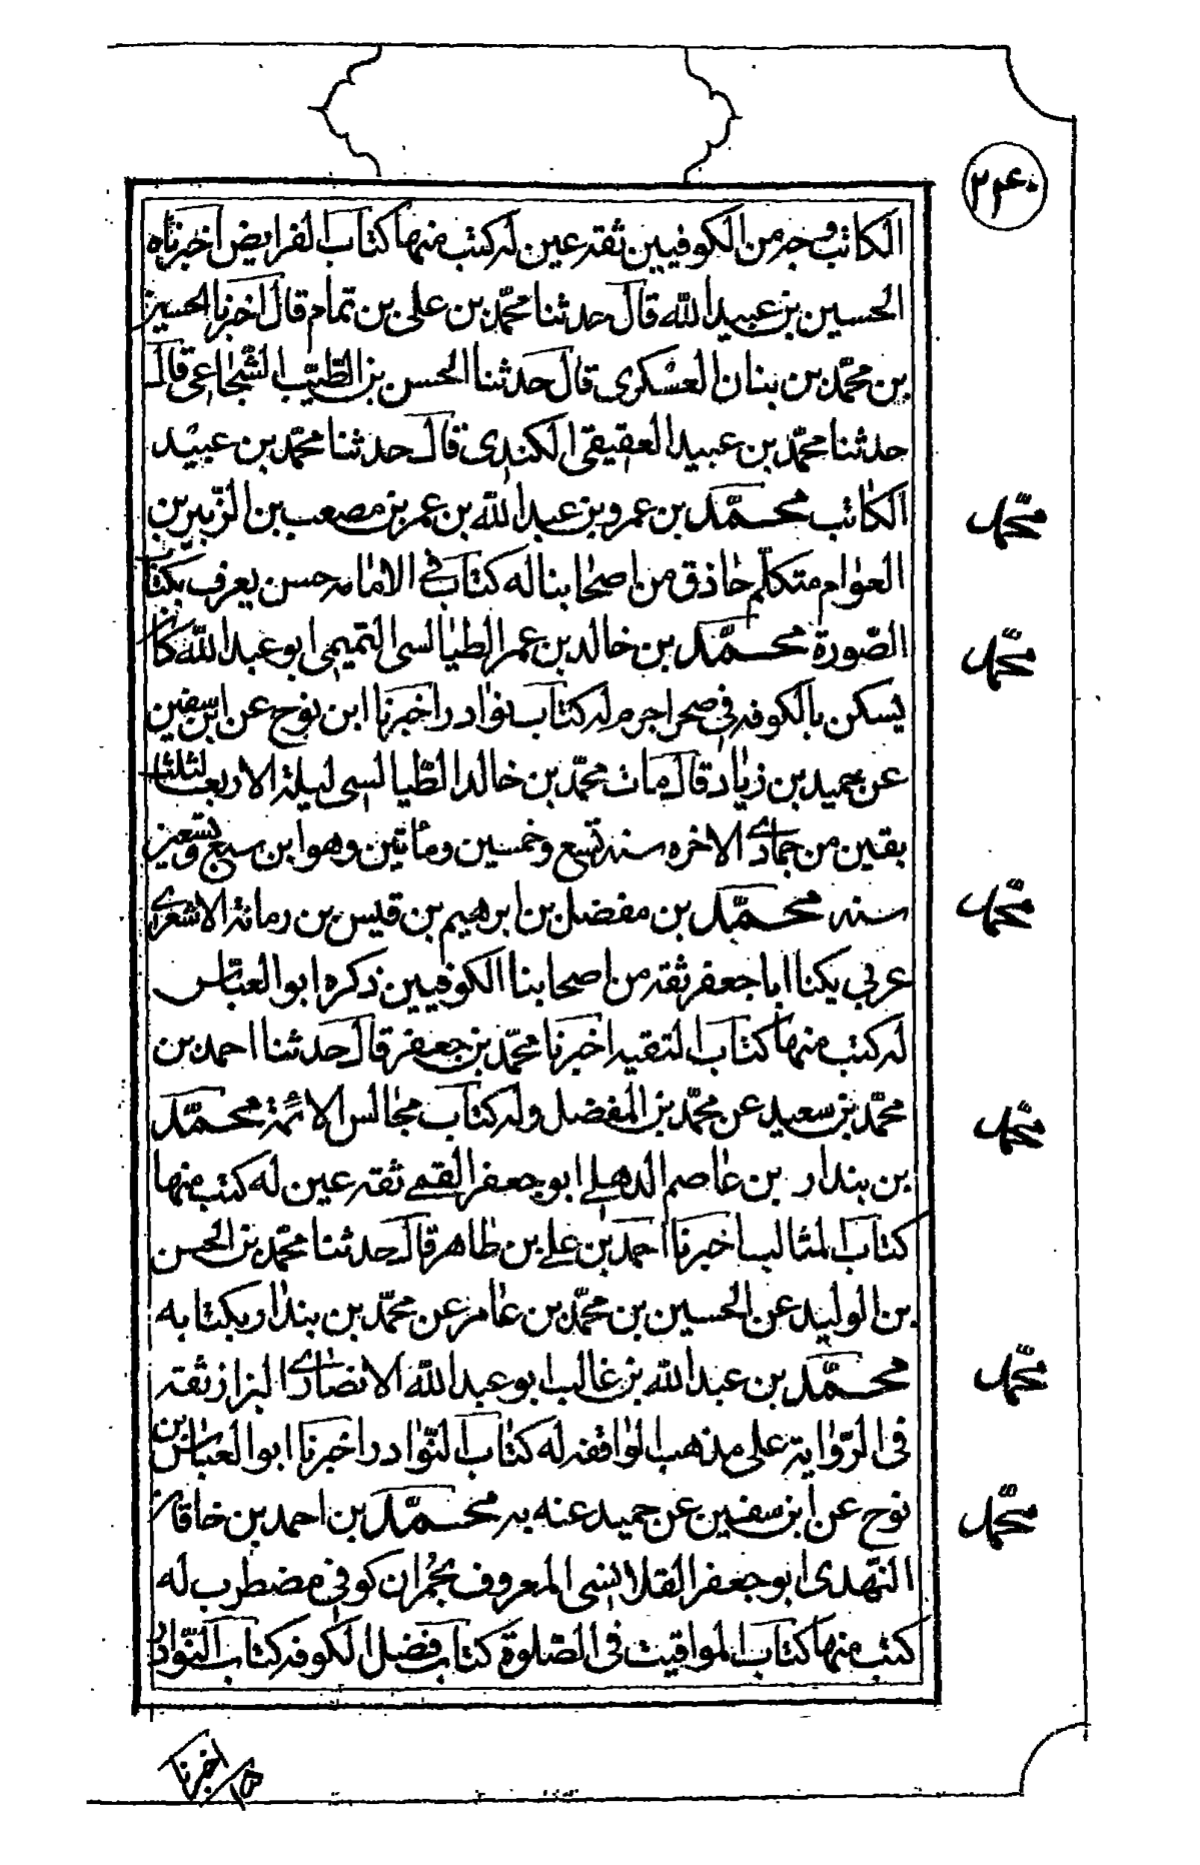 ۲۴۰
الكاتب وجه من الكوفيين ثقه عين له كتب منها كتاب الفرايض اخبرناه
الحسين بن عبيد الله قال حدثنا محمّد بن على بن تمام قال اخبرنا الحسين
بن محمّد بن بنان العسكرى قال حدثنا الحسن بن الطّيّب الشّجاعى قال
حدثنا محمّد بن عبيد العقيقى الكندى قال حدثنا محمّد بن عبيد
الكاتب محمّد بن عمرو بن عبد الله بن عمر بن مصعب بن الزّبير بن
العوام متكلّم حاذق من اصحابنا له كتاب فى الامامه حسن يعرف بكتاب
الصّورة محمّد بن خالد بن عمر الطيالسى التميمى ابو عبد الله كان
يسكن بالكوفه فى صحرا جرم له كتاب نوادر اخبرنا ابن نوح عن ابن سفين
عن حميد بن زياد قال مات محمّد بن خالد الطّيالسى ليلة الاربعا لثلث
بقين من جمادى الاخره سنه تسع وخمسين ومأتين وهو ابن سبع وتسعين
سنه محمّد بن مفضل بن ابرهيم بن قيس بن رمانة الاشعرى
عربى يكنا ابا جعفر ثقه من اصحابنا الكوفيين ذكره ابو العبّاس
له كتب منها كتاب التقيه اخبرنا محمّد بن جعفر قال حدثنا احمد بن
محمّد بن سعيد عن محمّد بن المفضل وله كتاب مجالس الائمّة محمّد
بن بندار بن عاصم الدهلى ابو جعفر القمى ثقه عين له كتب منها
كتاب المثالب اخبرنا احمد بن على بن طاهر قال حدثنا محمّد بن الحسن
بن الوليد عن الحسين بن محمّد بن عامر عن محمّد بن بندار بكتابه
محمّد بن عبد الله بن غالب ابو عبد الله الانصارى البزاز ثقه
فى الرّواية على مذهب الواقفه له كتاب النّوادر اخبرنا ابو العباس بن
نوح عن ابن سفين عن حميد عنه به محمّد بن احمد بن خاقان
النّهدى ابو جعفر القلانسى المعروف بحُمران كوفى مضطرب له
كتب منها كتاب المواقيت فى الصّلوة كتاب فضل الكوفه كتاب النّوادر
محمّد
محمّد
محمّد
محمّد
محمّد
محمّد
اخبرنا